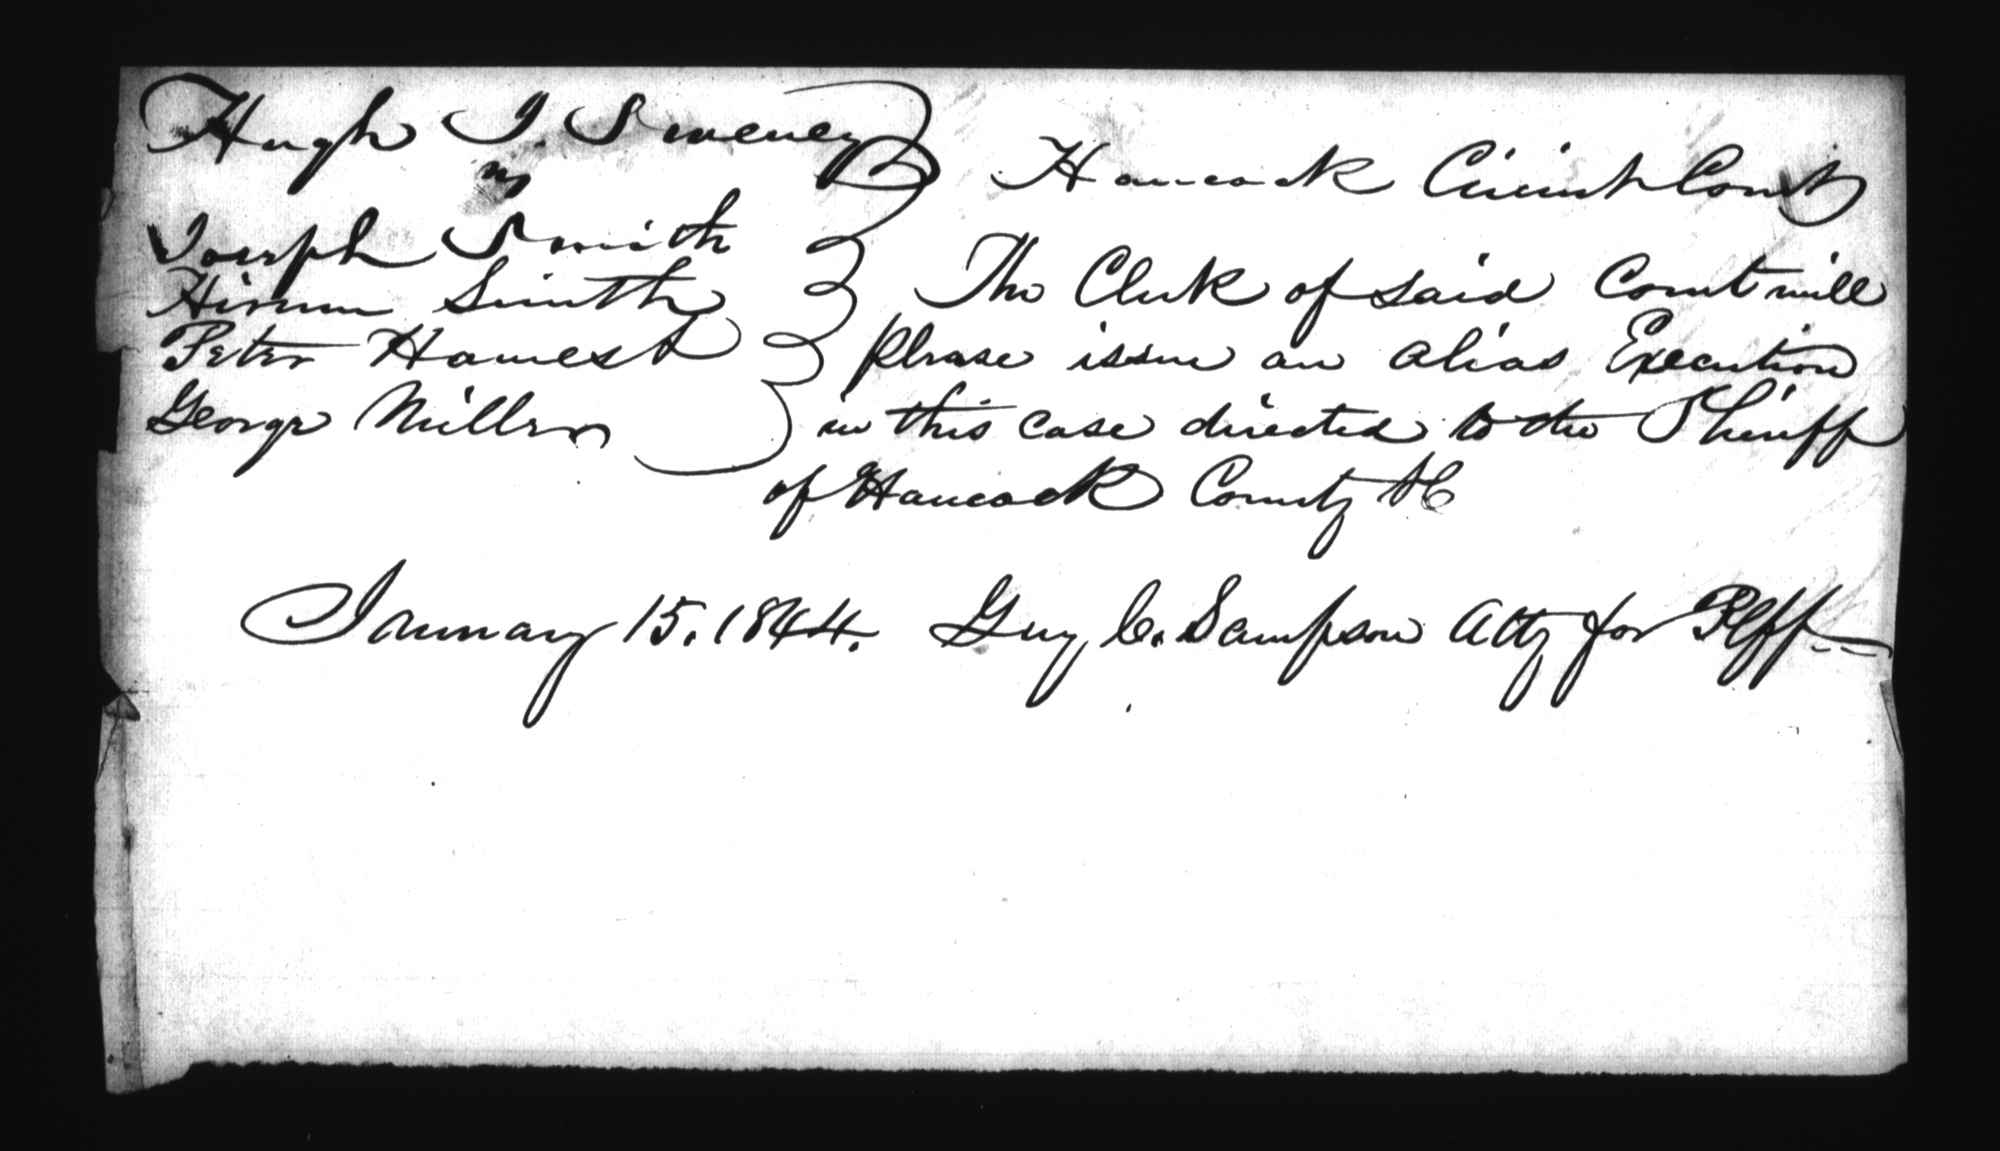 Hugh I. Sweney
vs
Joseph Smith
Hirum Smith
Peter Hawes
George Miller
Hancock Circuit Court
The Clerk of said Court will
please issue an alias Execution
in this case directed to the Sheriff
of Hancock County &C
January 15. 1844. Guy C. Sampson Atty for Plff